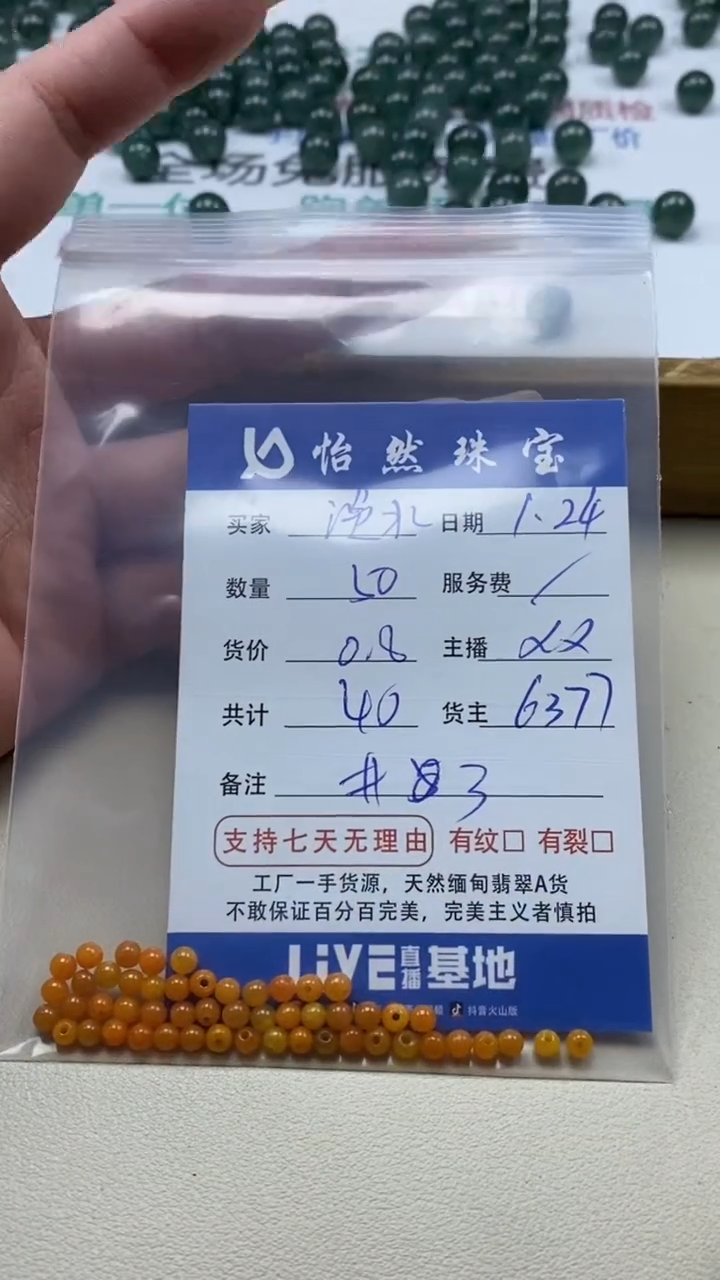 质检
厂价
全场免
单一
怡然珠宝
买家 日期 1.24
数量 50 服务费 /
货价 0.8 主播
共计 40 货主 6377
备注 #83
支持七天无理由 有纹□ 有裂□
工厂一手货源，天然缅甸翡翠A货
不敢保证百分百完美，完美主义者慎拍
LiVE直播基地
抖音火山版